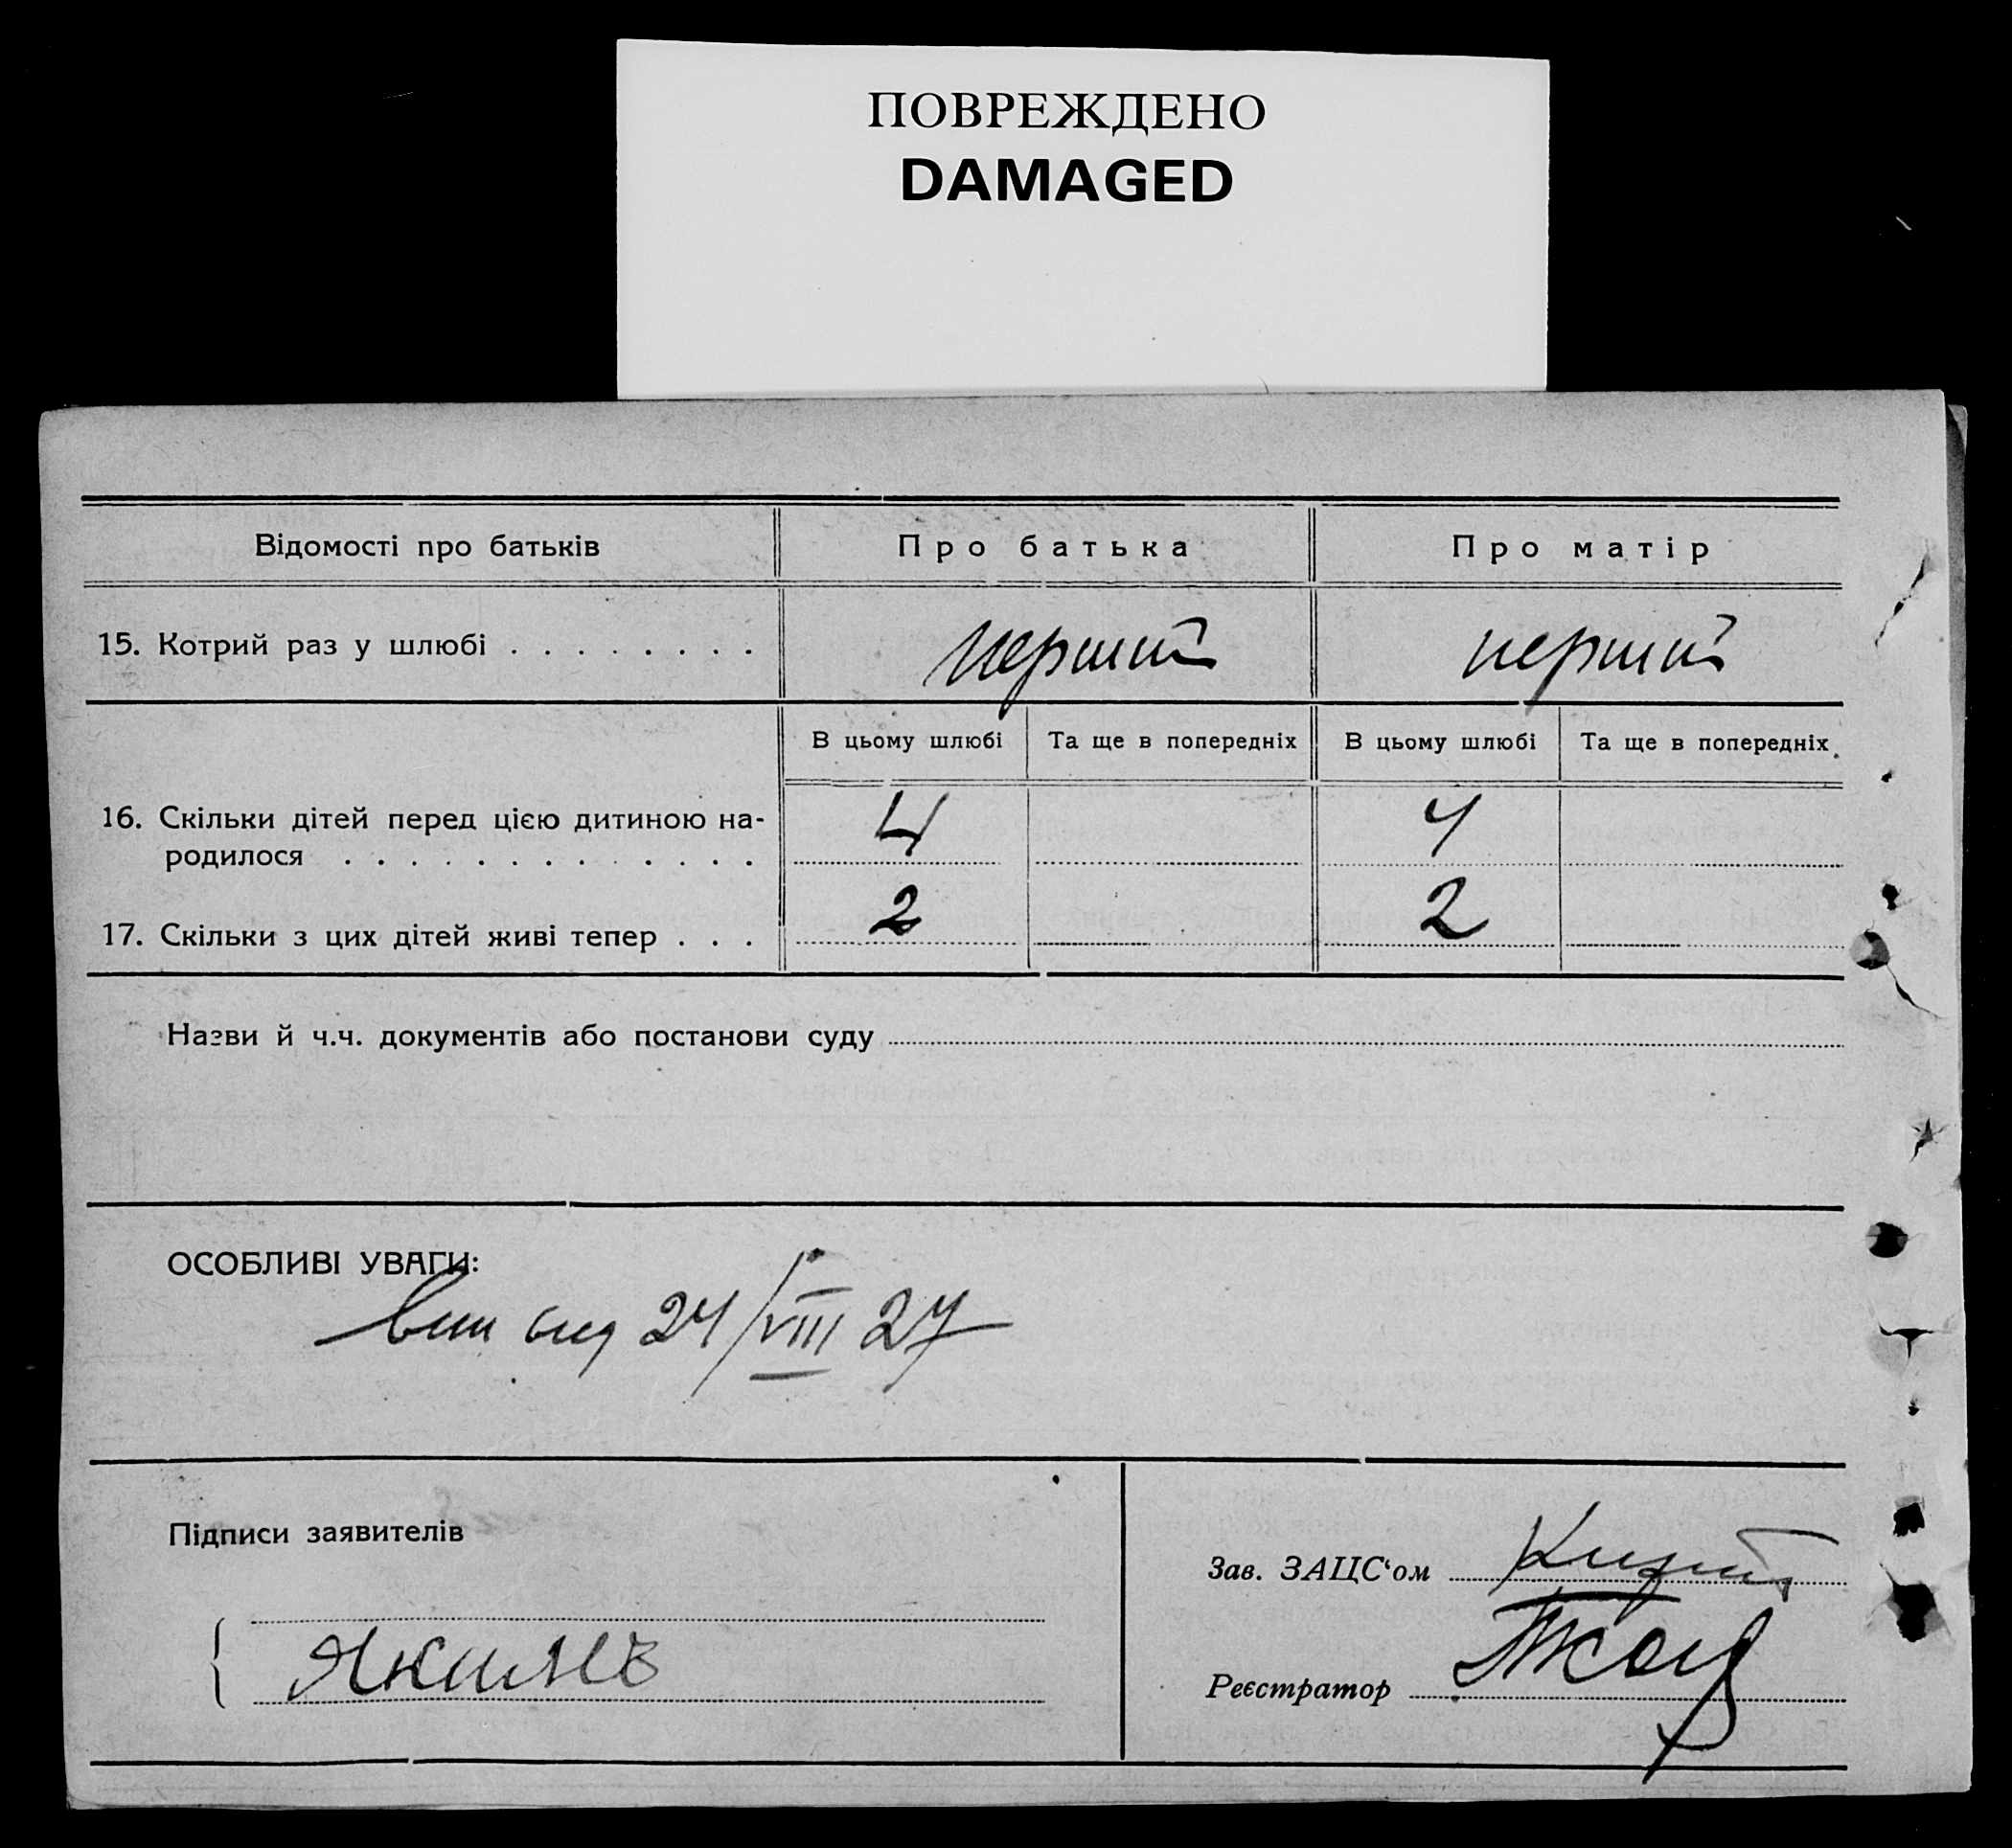 ПОВРЕЖДЕНО
DAMAGED
Відомості про батьків
Про батька
Про матір
15. Котрий раз у шлюбі . . . . . . . .
перший
перший
В цьому шлюбі
Та ще в попередніх
В цьому шлюбі
Та ще в попередніх
16. Скільки дітей перед цією дитиною на-
родилося . . . . . . . . . . . . .
4
4
17. Скільки з цих дітей живі тепер . . .
2
2
Назви й ч.ч. документів або постанови суду
ОСОБЛИВІ УВАГИ:
24/VIII 27
Підписи заявителів
Зав. ЗАЦС‘ом
Реєстратор